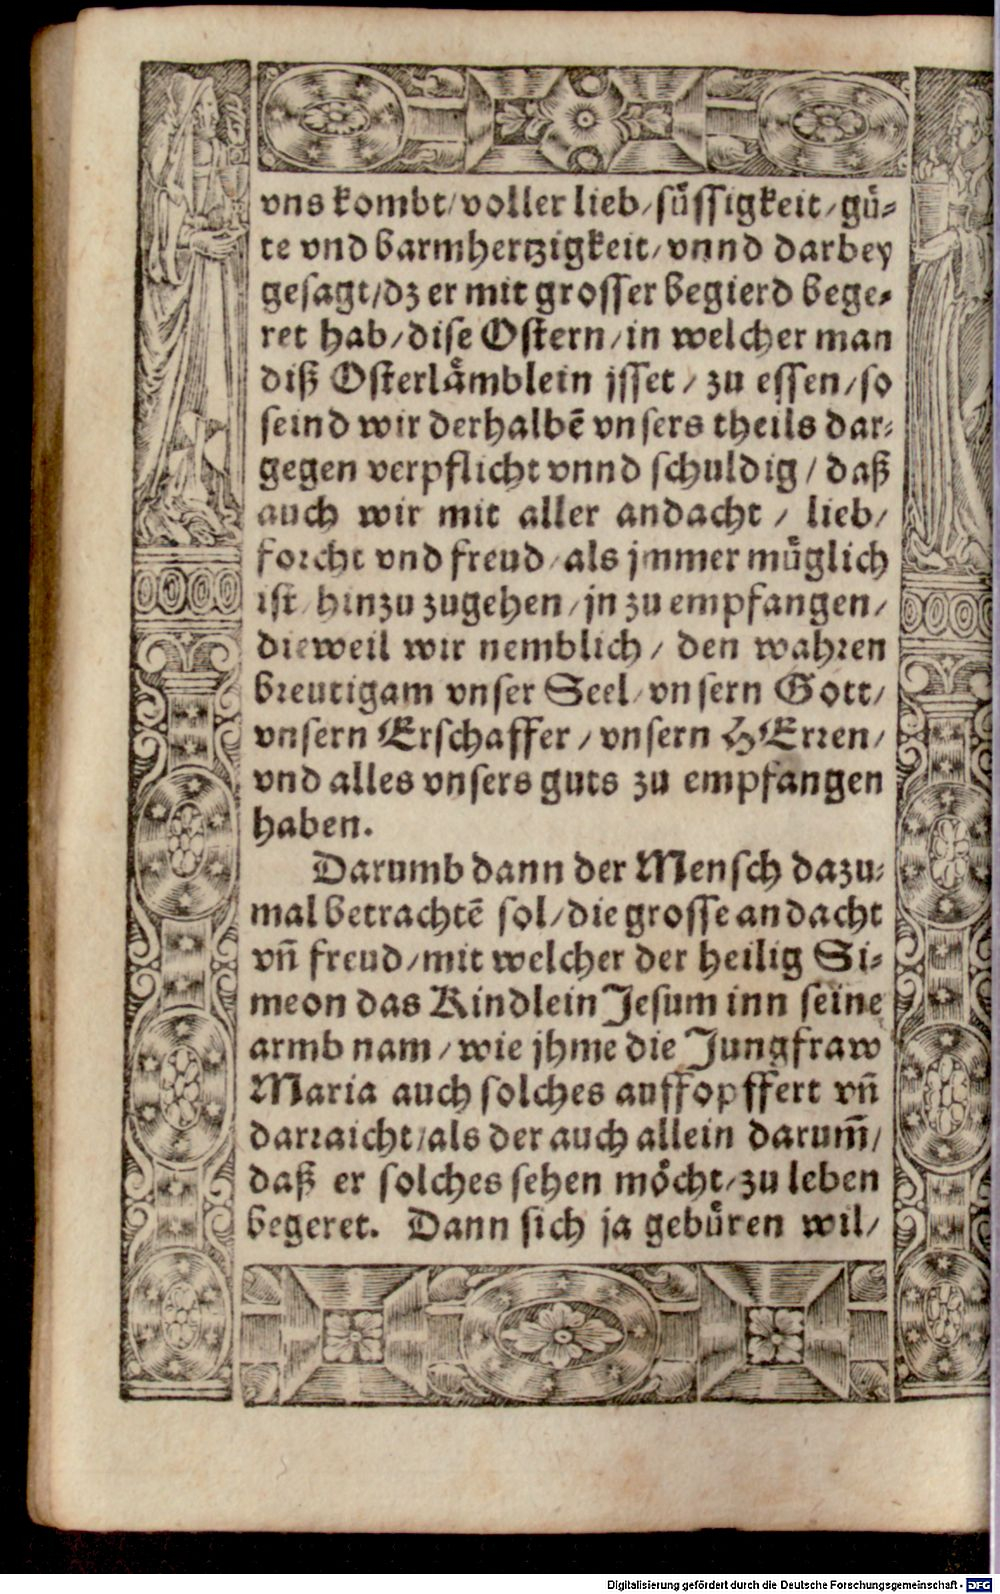 vns kombt/voller lieb/süssigkeit/gü-
te vnd barmhertzigkeit/vnnd darbey
gesagt/dz er mit grosser begierd bege-
ret hab/dise Ostern/in welcher man
diß Osterlämblein jsset/zu essen/so
seind wir derhalbē vnsers theils dar-
gegen verpflicht vnnd schuldig/daß
auch wir mit aller andacht/lieb/
forcht vnd freud/als jmmer müglich
ist/hinzu zugehen/jn zu empfangen/
dieweil wir nemblich/den wahren
breutigam vnser Seel/vnsern Gott/
vnsern Erschaffer/vnsern HErren/
vnd alles vnsers guts zu empfangen
haben.
Darumb dann der Mensch dazu-
mal betrachtē sol/die grosse andacht
vn̄ freud/mit welcher der heilig Si-
meon das Kindlein Jesum inn seine
armb nam/wie jhme die Jungfraw
Maria auch solches auffopffert vn̄
darraicht/als der auch allein darum̄/
daß er solches sehen möcht/zu leben
begeret. Dann sich ja gebüren wil/
Digitalisierung gefördert durch die Deutsche Forschungsgemeinschaft - DFG